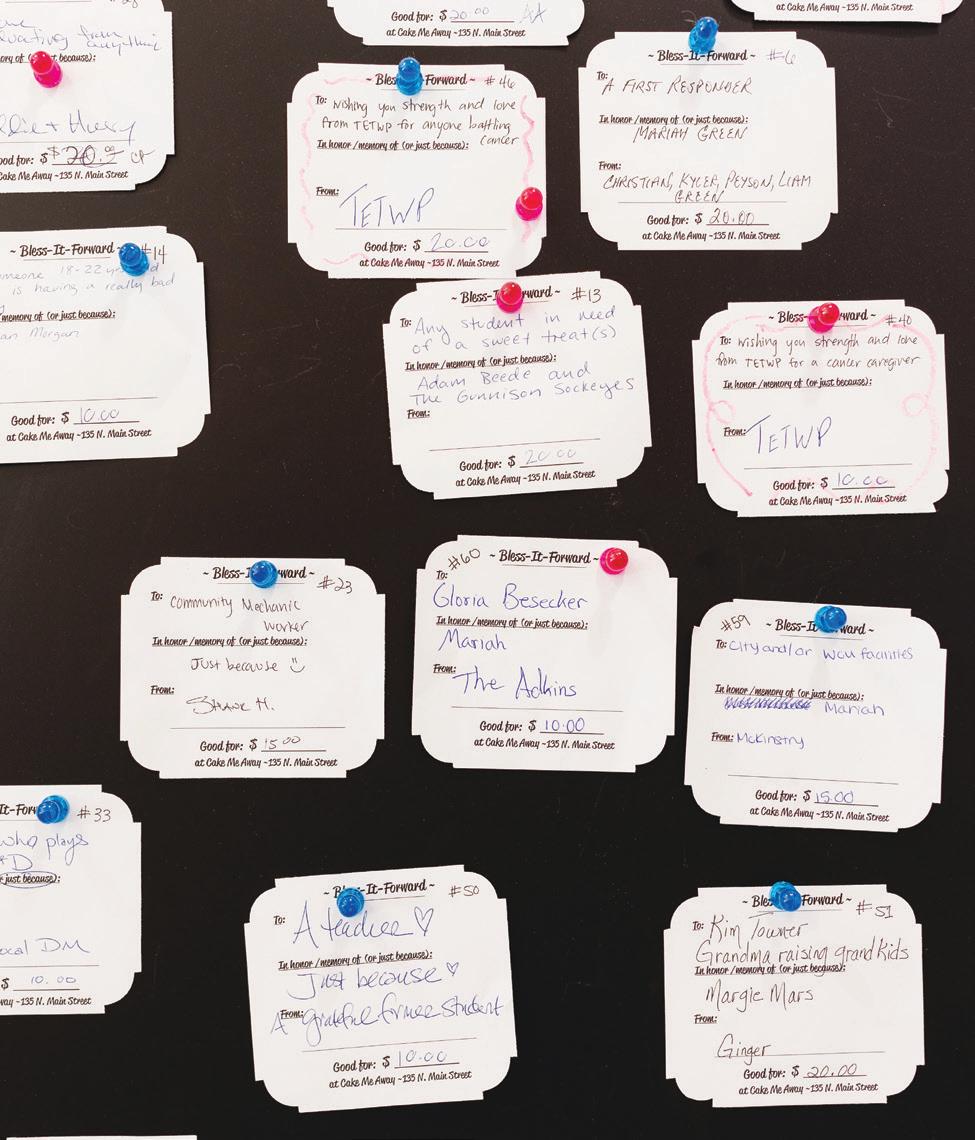 anything
ory of (or just because):
ood for: $ $20.00 CP
way ~135 N. Main Street
Good for: $ 20.00
at Cake Me Away ~135 N. Main Street
~ Bless- Forward ~ #46
To: wishing you strength and love
from TETWP for anyone battling
cancer
In honor/memory of (or just because):
From:
TETWP
Good for: $ 20.00
at Cake Me Away ~135 N. Main Street
~ Bless-It-Forward ~ #6
To: A FIRST RESPONDER
In honor/memory of (or just because):
MARIAH GREEN
From:
CHRISTIAN, KYLER, PEYSON, LIAM
GREEN
Good for: $ 20.00
at Cake Me Away ~135 N. Main Street
~ Bless-It-Forward #14
omeone 18-22 yrs
is having a really bad
memory of (or just because):
an Morgan
Good for: $ 10.00
at Cake Me Away ~135 N. Main Street
~ Bless-I ward ~ #13
To: Any student in need
of a sweet treat(s)
In honor/memory of (or just because):
Adam Beede and
The Gunnison Sockeyes
From:
Good for: $ 20.00
at Cake Me Away ~135 N. Main Street
~ Bless- ward ~ #40
To: wishing you strength and love
from TETWP for a cancer caregiver
In honor/memory of (or just because):
From: TETWP
Good for: $ 10.00
at Cake Me Away ~135 N. Main Street
~ Bless-I ward ~ #23
To: Community Mechanic
worker
In honor/memory of (or just because):
Just because
From:
SHANK H.
Good for: $ 15.00
at Cake Me Away ~135 N. Main Street
#60 ~ Bless-It-Forward ~
To:
Gloria Besecker
In honor/memory of (or just because):
Mariah
From:
The Adkins
Good for: $ 10.00
at Cake Me Away ~135 N. Main Street
#59 ~ Bless-It ward ~
To: City and/or WCU facilities
In honor/memory of (or just because):
Mariah
From: McKinstry
Good for: $ 15.00
at Cake Me Away ~135 N. Main Street
It-Forw #33
who plays
D
just because):
ocal DM
$ 10.00
way ~135 N. Main Street
~ B -It-Forward ~ #50
To: A teacher ♡
In honor/memory of (or just because):
Just because ♡
From: A grateful former student
Good for: $ 10.00
at Cake Me Away ~135 N. Main Street
~ Bles Forward ~ #51
To: Kim Towner
Grandma raising grandkids
In honor/memory of (or just because):
Margie Mars
From:
Ginger
Good for: $ 20.00
at Cake Me Away ~135 N. Main Street